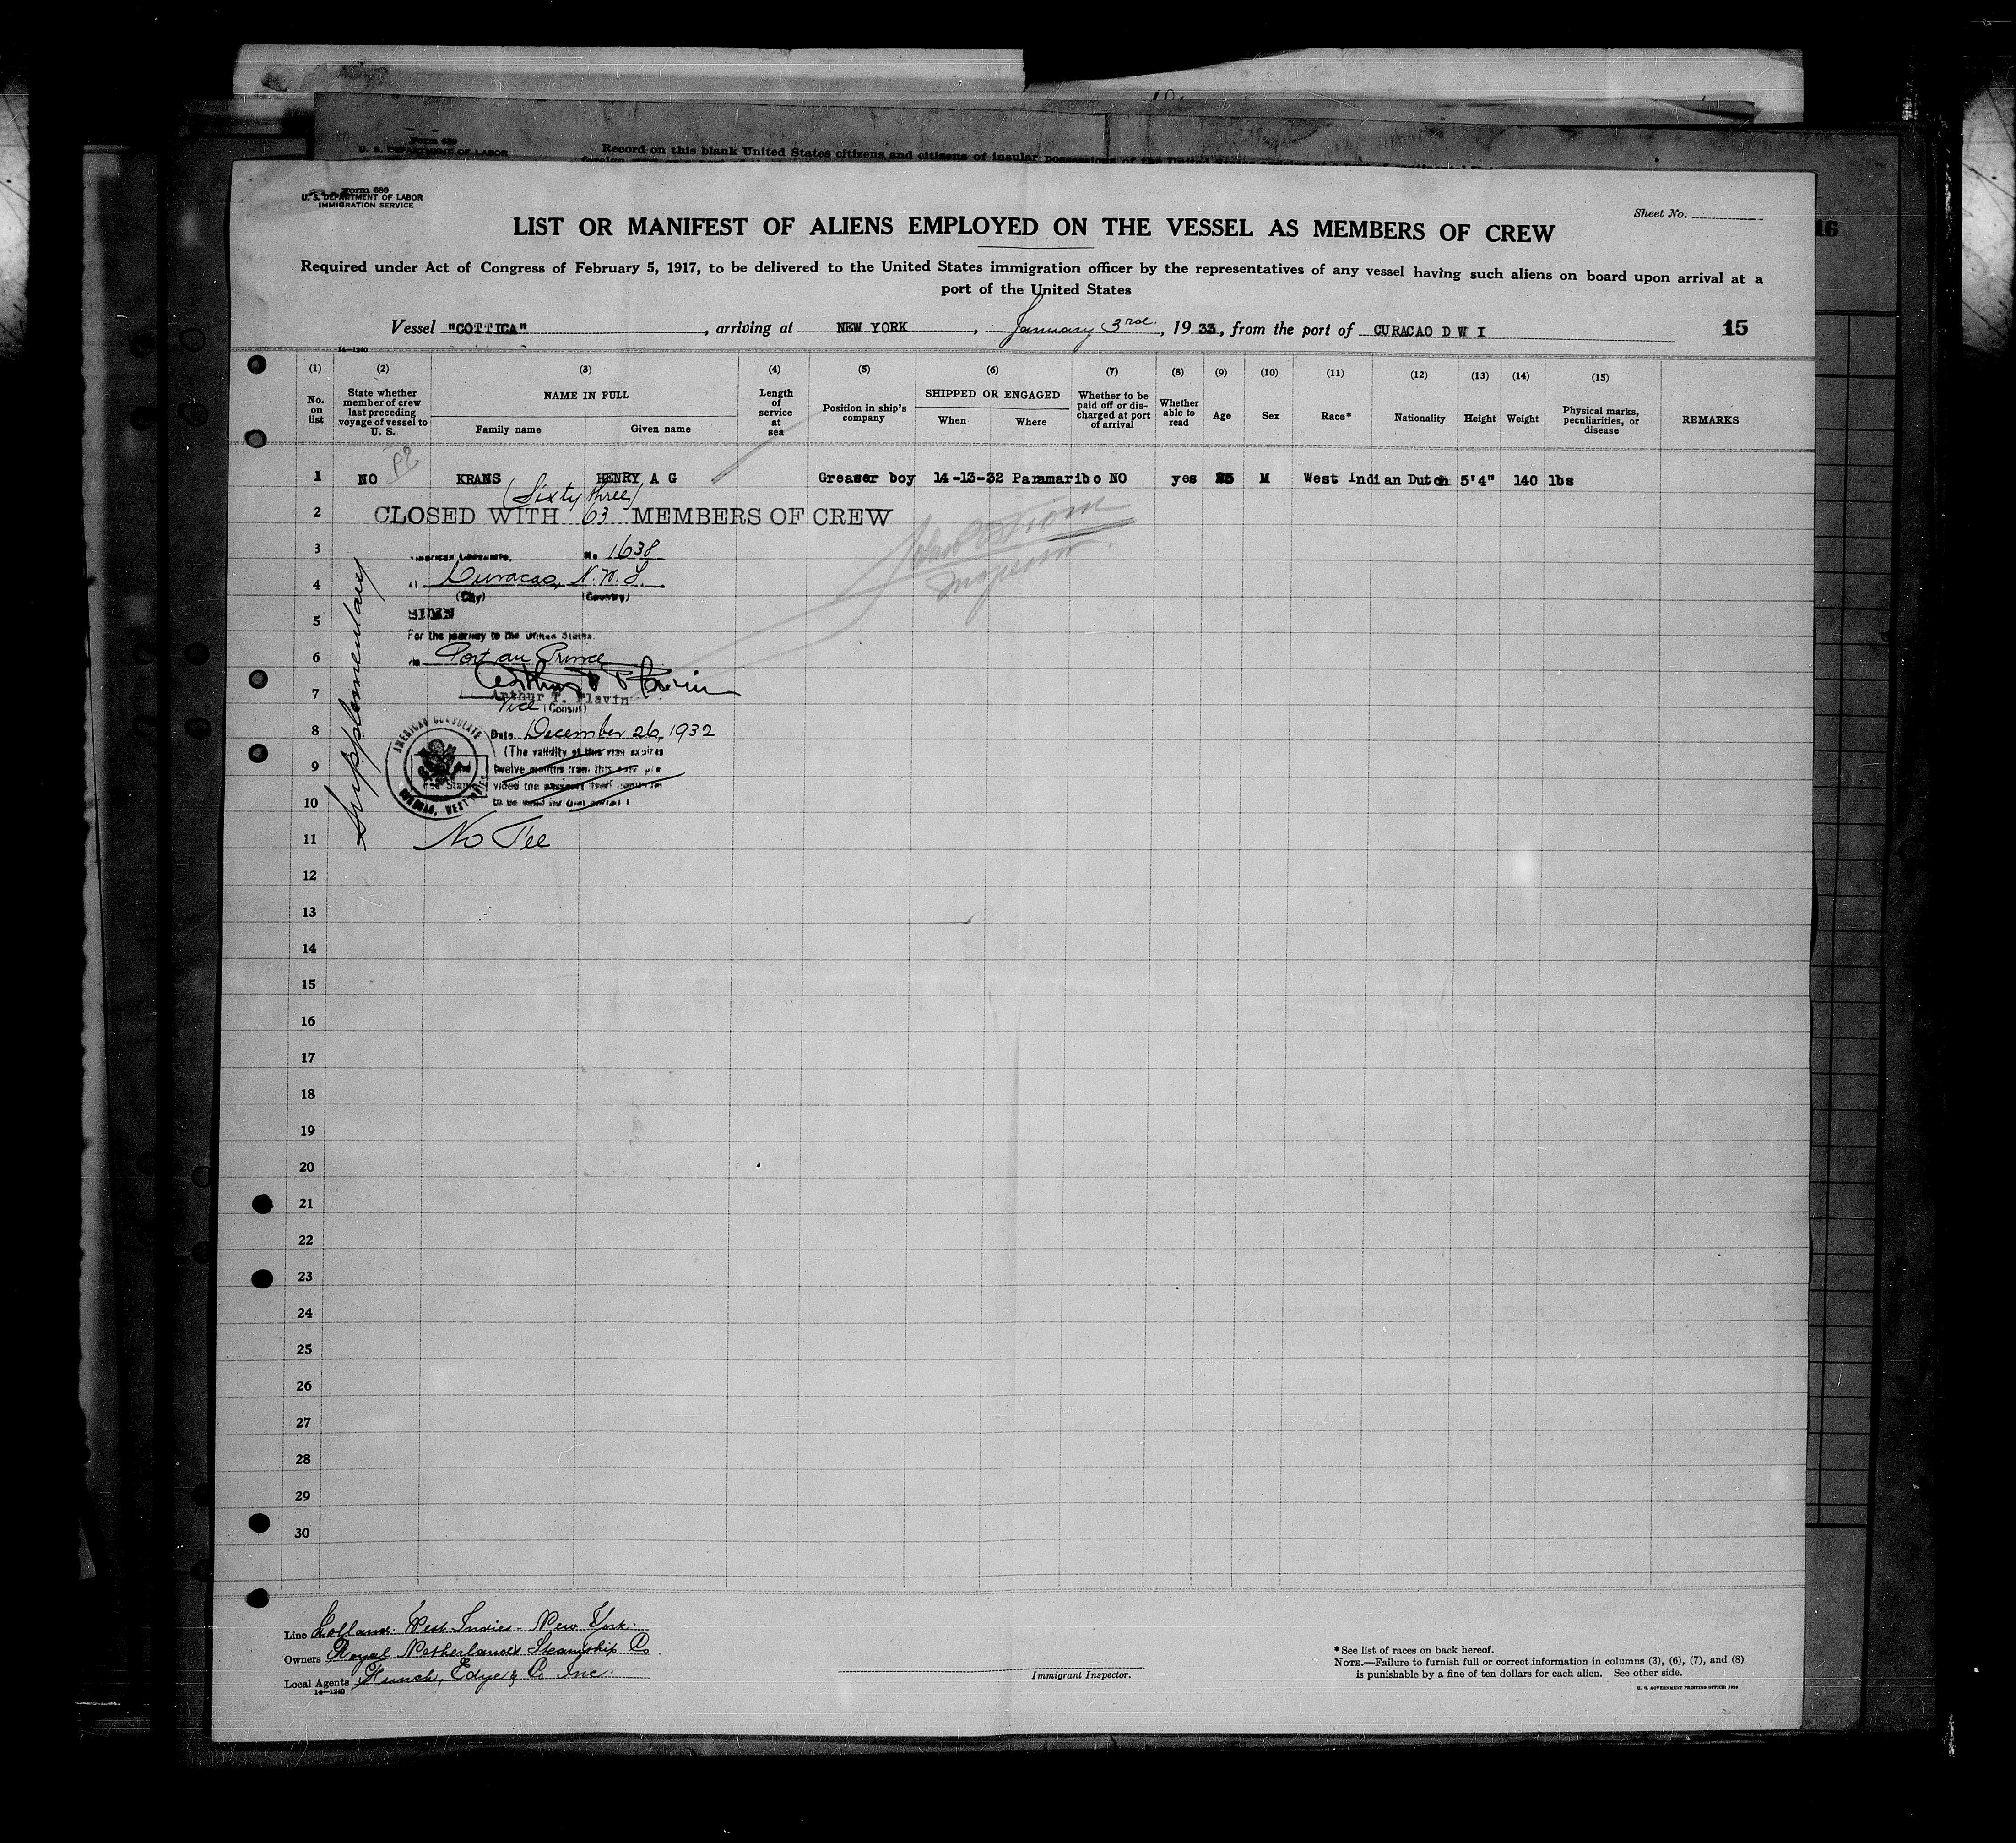 Form 680
U. S. DEPARTMENT OF LABOR
Record on this blank United States citizens and citizens of insular possessions of the United States
Form 680
U. S. DEPARTMENT OF LABOR
IMMIGRATION SERVICE
Sheet No.
LIST OR MANIFEST OF ALIENS EMPLOYED ON THE VESSEL AS MEMBERS OF CREW
16
Required under Act of Congress of February 5, 1917, to be delivered to the United States immigration officer by the representatives of any vessel having such aliens on board upon arrival at a
port of the United States
Vessel "COTTICA", arriving at NEW YORK, January 3rd, 1933, from the port of CURACAO D W I 15
14—1240
(1) (2) (3) (4) (5) (6) (7) (8) (9) (10) (11) (12) (13) (14) (15)
No. on list
State whether member of crew last preceding voyage of vessel to U. S.
NAME IN FULL
Family name
Given name
Length of service at sea
Position in ship's company
SHIPPED OR ENGAGED
When
Where
Whether to be paid off or discharged at port of arrival
Whether able to read
Age
Sex
Race*
Nationality
Height
Weight
Physical marks, peculiarities, or disease
REMARKS
1 NO KRANS HENRY A G Greaser boy 14-13-32 Paramaribo NO yes M West Indian Dutch 5'4" 140 lbs
(Sixty three)
2 CLOSED WITH 63 MEMBERS OF CREW
3 No. 1638
4 Curacao, N.W.I.
(City) (Country)
5
For the journey to the United States.
6 Port au Prince
7 Arthur T. Flavin
Vice (Consul)
8 Date December 26, 1932
(The validity of this visa expires
9 twelve months from this date pro
vided the passport
10
AMERICAN CONSULATE
CURACAO, WEST INDIES
Supplementary
11 No Fee
12
13
14
15
16
17
18
19
20
21
22
23
24
25
26
27
28
29
30
Line Holland West Indies - New York.
Owners Royal Netherlands Steamship Co
Local Agents Funch, Edye & Co Inc.
14—1240
Immigrant Inspector.
*See list of races on back hereof.
NOTE.—Failure to furnish full or correct information in columns (3), (6), (7), and (8)
is punishable by a fine of ten dollars for each alien. See other side.
U. S. GOVERNMENT PRINTING OFFICE